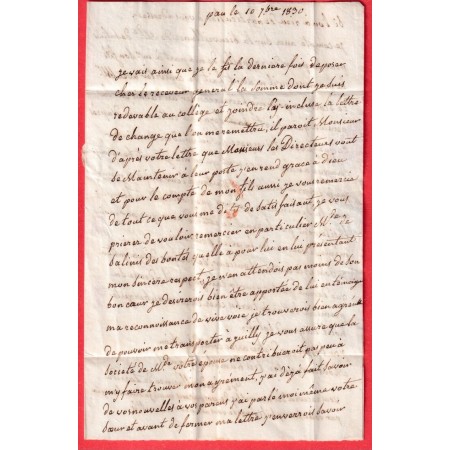 pau le 10 7bre 1830.
je vais ainsi que je le fis la derniere fois deposer
chez le receveur general la somme dont je suis
redevable au collége et joindre ici-incluse la lettre
de change que l'on me remettra, il paroit Monsieur
d'après votre lettre que Messieurs les Directeurs vont
se maintenir à leur poste j'en rend grace à dieu
et pour le compte de mon fils aussi je vous remercie
de tout ce que vous me dites de satisfaisant, je vous
prierez de vouloir remercier en particulier Mr de
Salinis des bontés qu'elle à pour lui en lui présentant
mon sincere respect, je n'en attendois pas moins de son
bon cœur je desirerois bien être apportée de lui en témoigner
ma reconnoissance de vive voix je trouverois bien agreable
de pouvoir me transporter à juilly je vous assure que la
societé de Mde votre epouse ne contribueroit pas peu à
m'y faire trouver mon agrement, j'ai déjà fait savoir
de vos nouvelles à vos parens j'ai parlé moi même à votre
sœur et avant de fermer ma lettre j'enverrois savoir